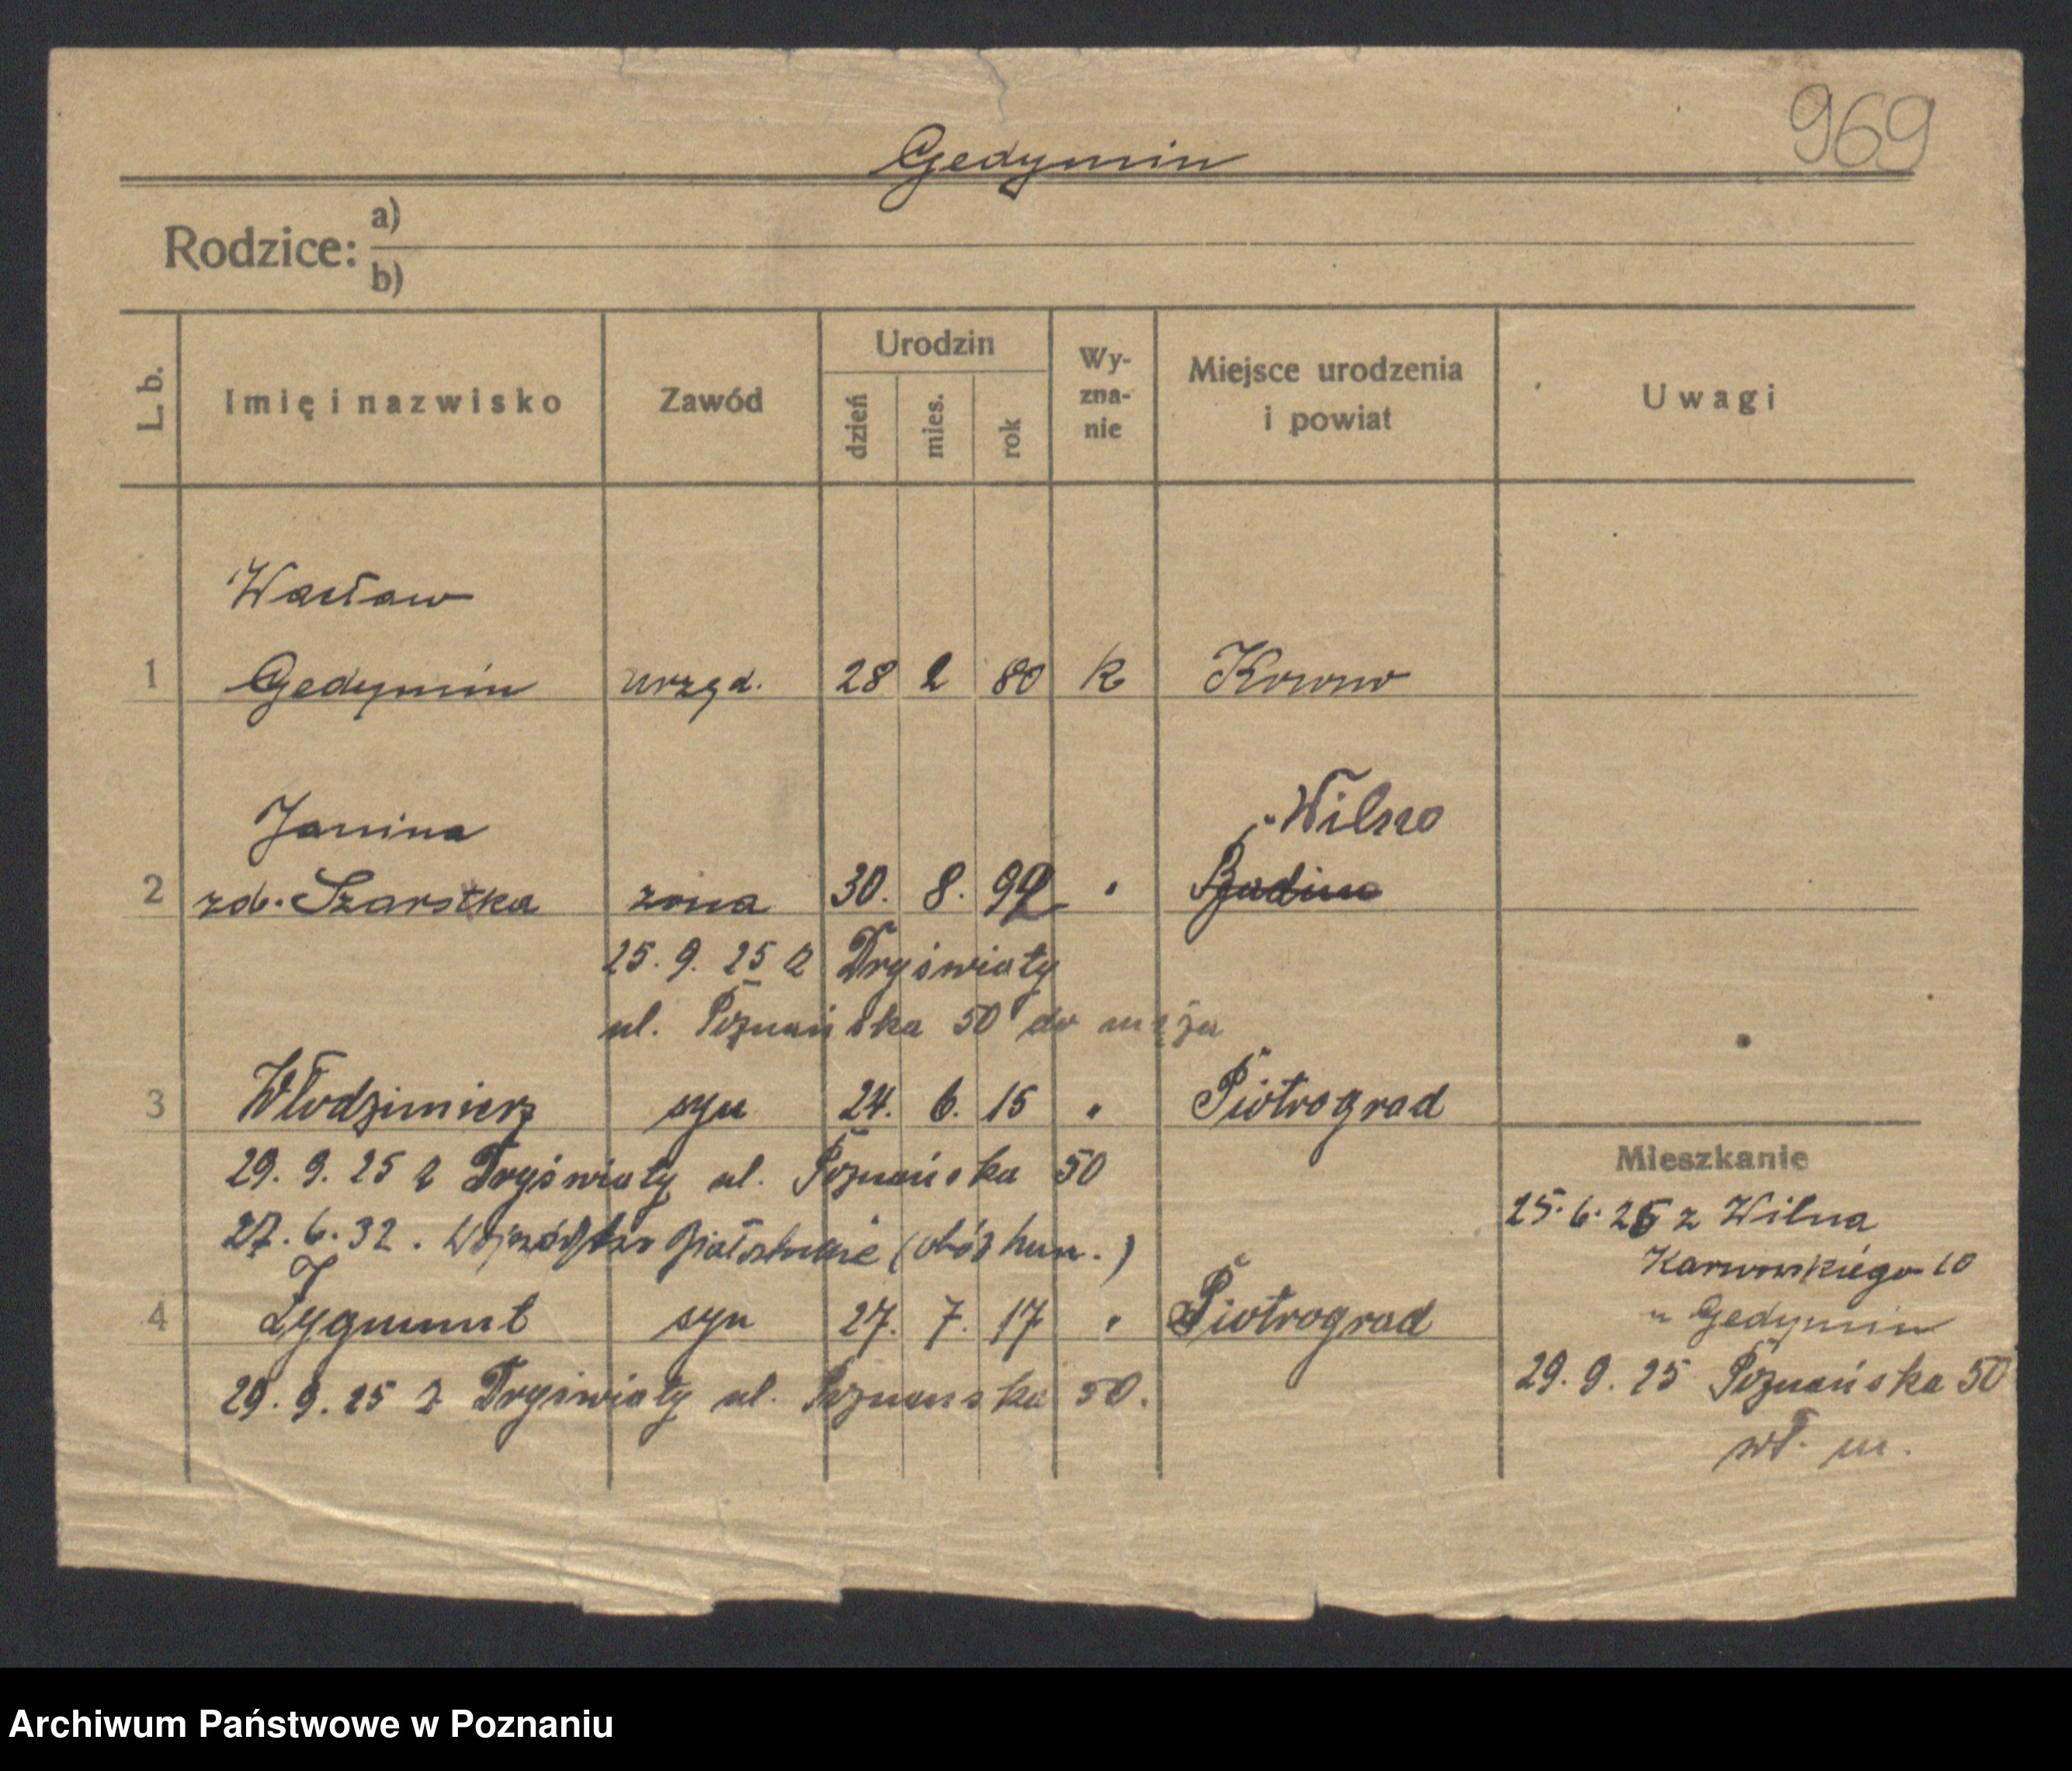 969
Gedymin
Rodzice: a)
b)
L. b.
Imię i nazwisko
Zawód
Urodzin
dzień
mies.
rok
Wy-
zna-
nie
Miejsce urodzenia
i powiat
Uwagi
Wacław
1 Gedymin urzęd. 28 2 80 k Kowno
Janina
Wilno
2 zd. Szarska żona 30. 8. 92 "
25. 9. 25 z Dryświaty
ul. Poznańska 50 do męża
3 Włodzimierz syn 24. 6. 15 " Piotrograd
29. 9. 25 z Dryświaty ul. Poznańska 50
27. 6. 32. (obóz hum.)
4 Zygmunt syn 27. 7. 17 " Piotrograd
29. 9. 25 z Dryświaty ul. Poznańska 50.
Mieszkanie
25. 6. 25 z Wilna
Karwowskiego 10
u Gedymin
29. 9. 25 Poznańska 50
wł. m.
Archiwum Państwowe w Poznaniu